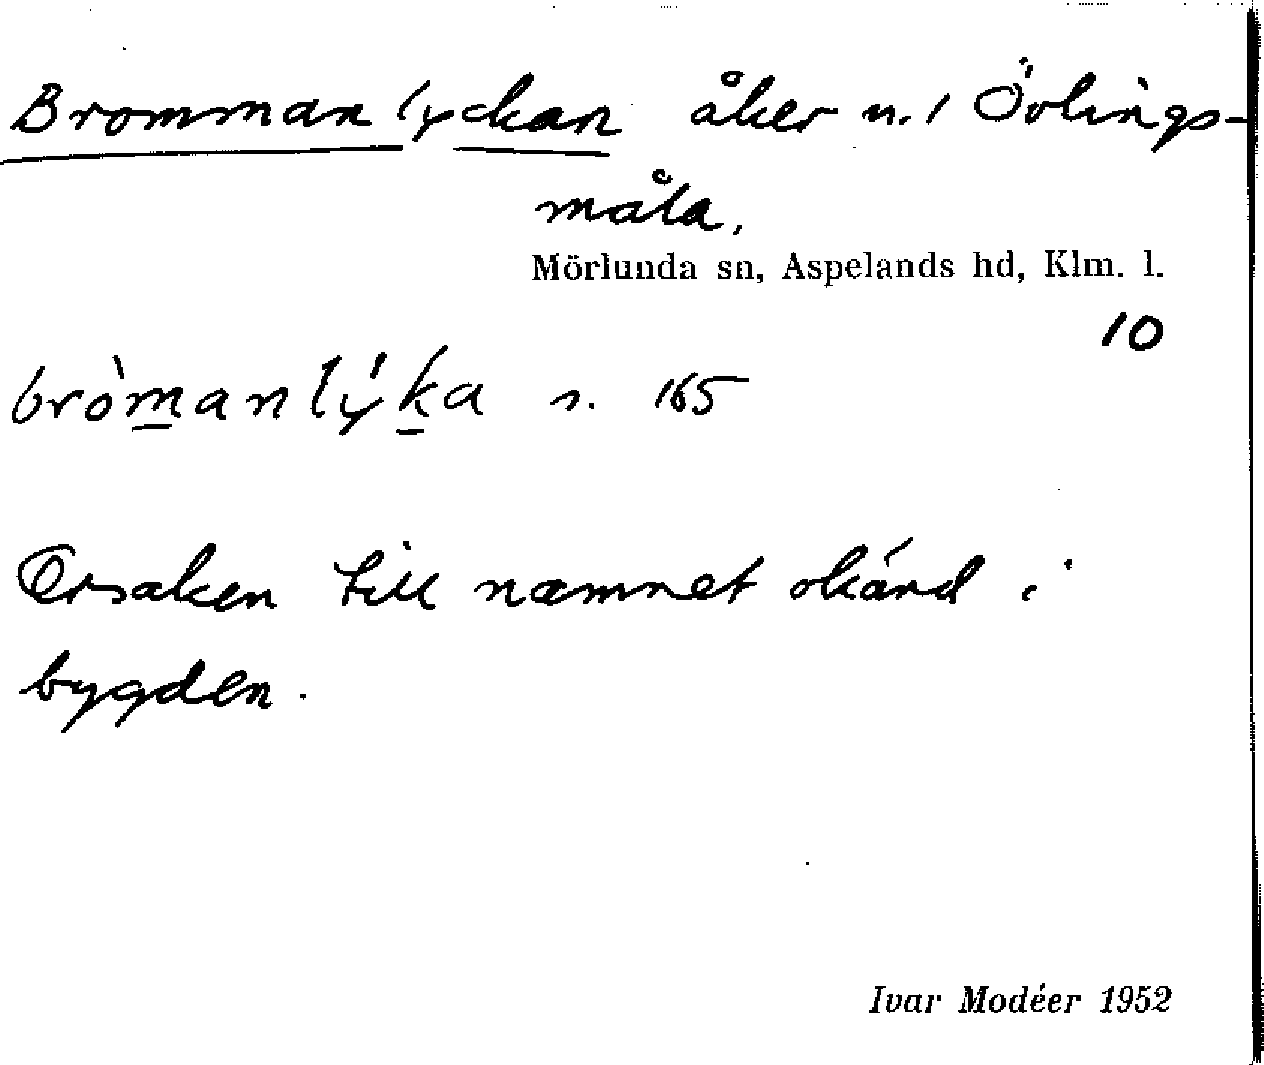 Bromman lyckan åker n. 1 Övlings-
måla,
Mörlunda sn, Aspelands hd, Klm. l.
10
bròmanlýka s. 165
Orsaken till namnet okänd i
bygden.
Ivar Modéer 1952